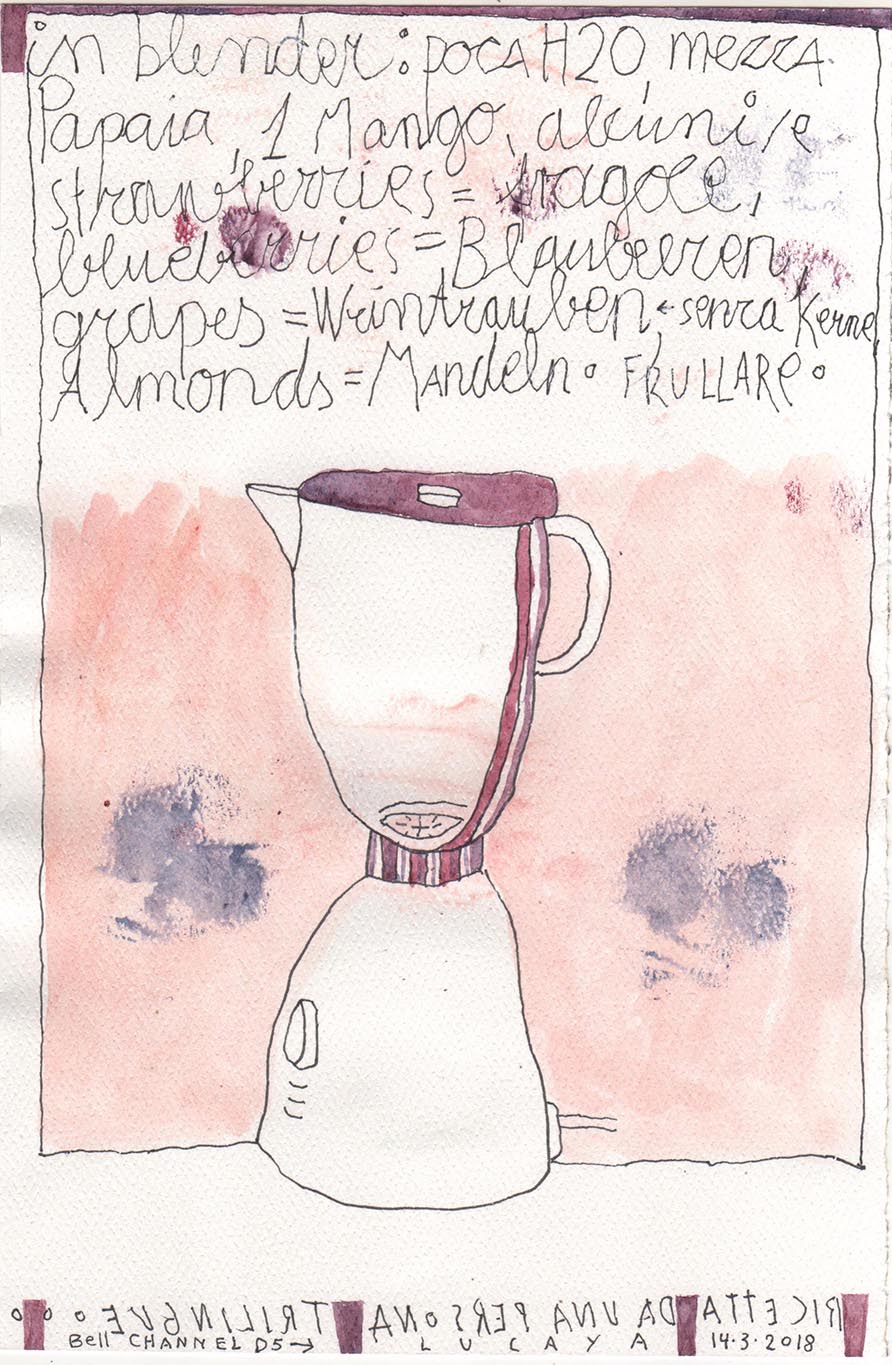 in blender: poca H2O, mezza
Papaia, 1 Mango, alcuni/e
strawberries = fragole,
blueberries = Blaubeeren,
grapes = Weintrauben senza Kerne
Almonds = Mandeln. FRULLARE.
RICETTA DA UNA PERSONA TRILINGUE
Bell CHANNEL D5 → LUCAYA 14.3.2018